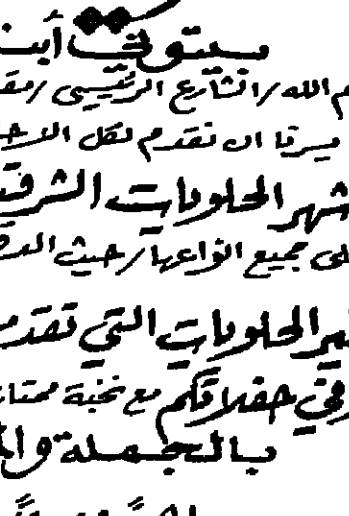 سيتوكي أبنـ
م الله / الشارع الرئيسي / مقـ
يسرنا ان نقدم لكل الاخـ
شهر الحلويات الشرقيـ
لى جميع انواعها / حيث الدقـ
ـير الحلويات التي تقدمـ
وفي حفلاتكم مع نخبة ممتاز
بالجملة والمـ